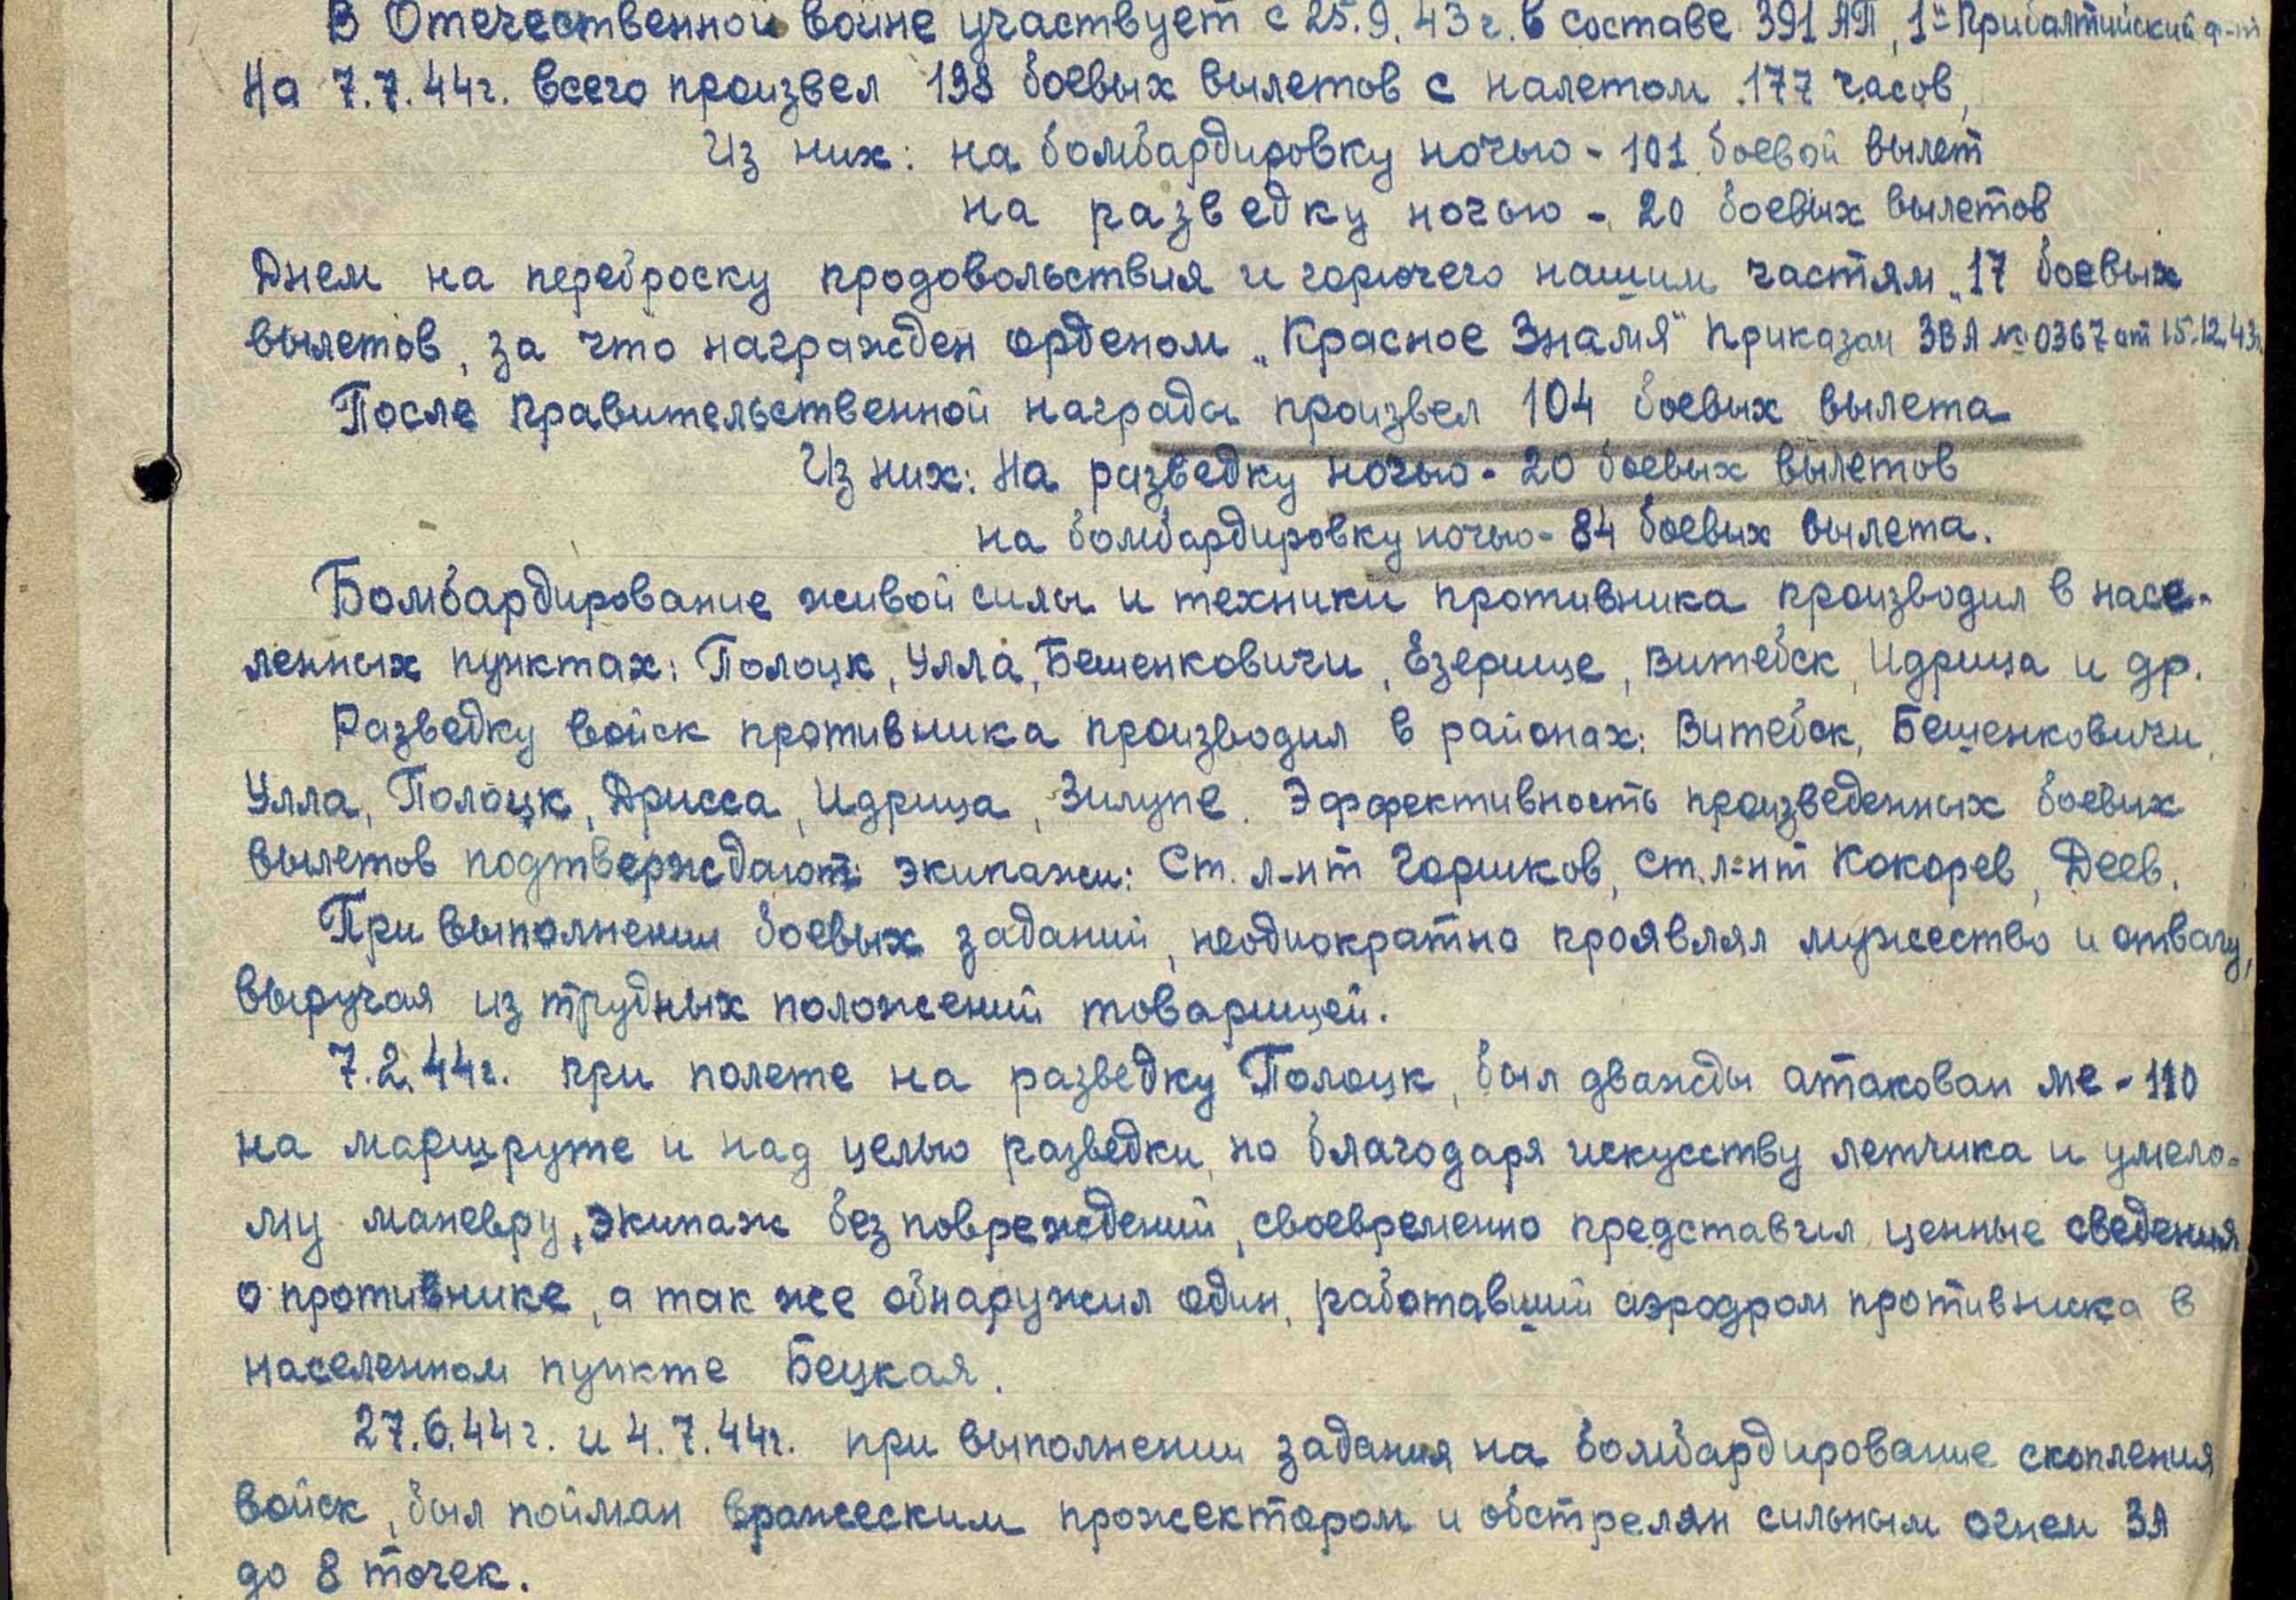 В Отечественной войне участвует с 25.9.43 г. в составе 391 АП, 1й Прибалтийский ф-т
На 7.7.44г. всего произвел 138 боевых вылетов с налетом 177 часов,
Из них: на бомбардировку ночью - 101 боевой вылет
на разведку ночью - 20 боевых вылетов
Днем на переброску продовольствия и горючего нашим частям „17 боевых
вылетов, за что награжден орденом „Красное Знамя" Приказом ЗВА № 0367 от 15.12.43г.
После правительственной награды произвел 104 боевых вылета
Из них: На разведку ночью - 20 боевых вылетов
на бомбардировку ночью - 84 боевых вылета.
Бомбардирование живой силы и техники противника производил в насе-
ленных пунктах: Полоцк, Улла, Бешенковичи, Езерище, Витебск, Идрица и др.
Разведку войск противника производил в районах: Витебск, Бешенковичи,
Улла, Полоцк, Дрисса, Идрица, Зилупе. Эффективность произведенных боевых
вылетов подтверждают: экипажи: Ст. л-нт Горшков, ст. л-нт Кокорев, Деев.
При выполнении боевых заданий, неоднократно проявлял мужество и отвагу,
выручая из трудных положений товарищей.
7.2.44г. при полете на разведку Полоцк, был дважды атакован Ме-110
на маршруте и над целью разведки, но благодаря искусству летчика и умело-
му маневру, экипаж без повреждений, своевременно представил ценные сведения
о противнике, а так же обнаружил один, работавший аэродром противника в
населенном пункте Бецкая.
27.6.44г. и 4.7.44г. при выполнении задания на бомбардирование скопления
войск, был пойман вражеским прожектором и обстрелян сильным огнем ЗА
до 8 точек.